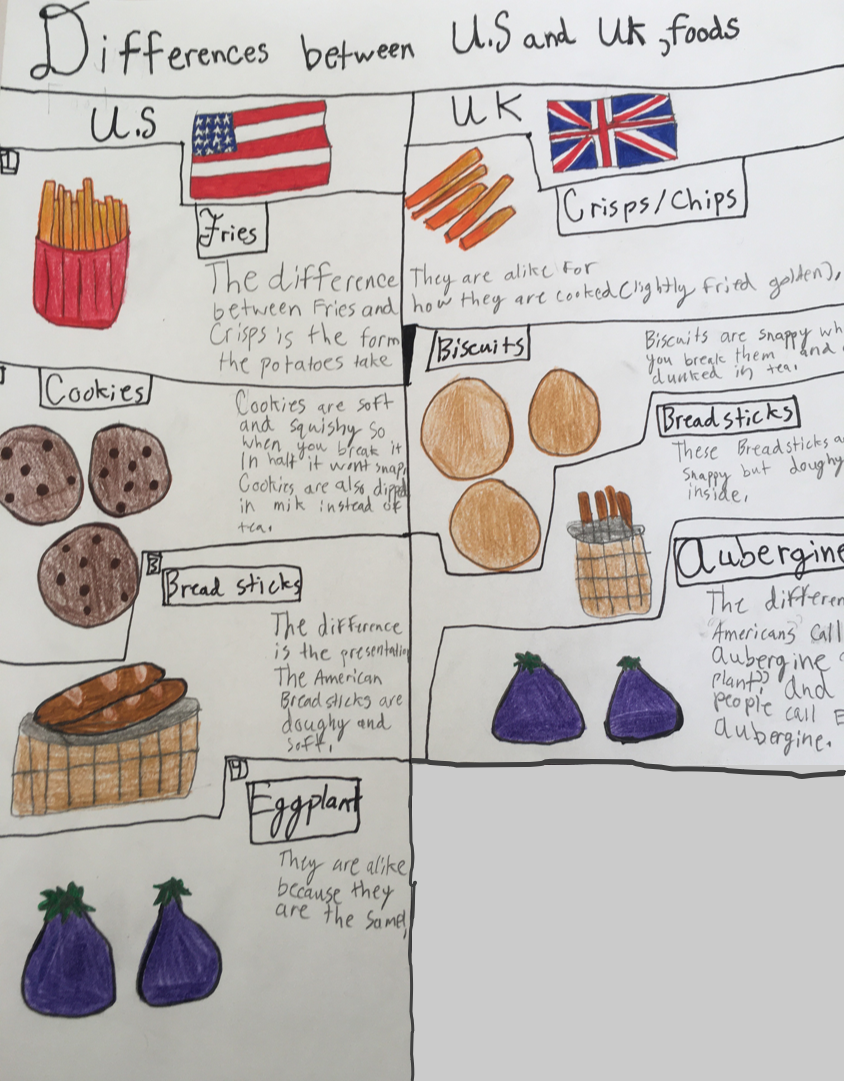 Differences between U.S and UK, foods
U.S
UK
1
Fries
The difference
between Fries and
Crisps is the form
the potatoes take
Crisps/Chips
They are alike for
how they are cooked(lightly fried golden),
Cookies
Cookies are soft
and squishy so
when you break it
In half it wont snap,
Cookies are also dipped
in milk instead of
tea.
Biscuits
Biscuits are snappy
you break them and
dunked in tea.
3
Bread sticks
The difference
is the presentation
The American
Breadsticks are
doughy and
soft.
Bread sticks
These Breadsticks
snappy but doughy
inside.
4
Eggplant
They are alike
because they
are the same,
Aubergine
The
Americans call
aubergine
plant" and
people call
aubergine.